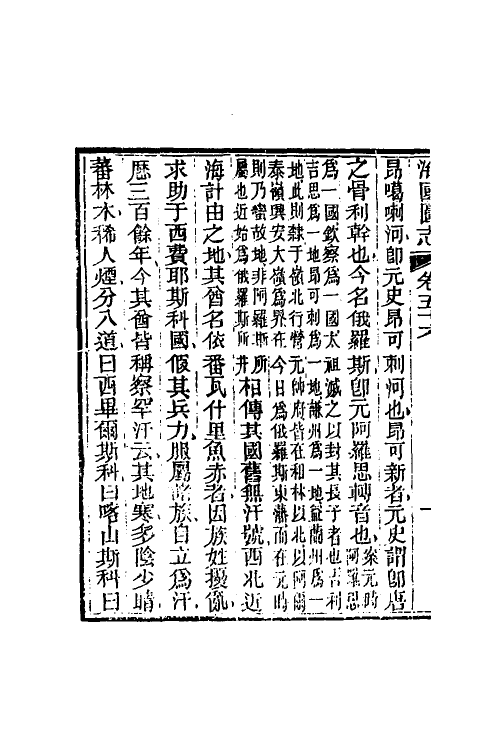 海國圖志 卷五十六 一
昂噶喇河卽元史昂可剌河也昂可新者元史謂卽唐
之骨利幹也今名俄羅斯卽元阿羅思轉音也案元時阿羅思
爲一國欽察爲一國太祖滅之以封其長子者也吉利
吉思爲一地昂可刺爲一地謙州爲一地益蘭州爲一
地此則隸于嶺北行營元帥府皆在和林以北以阿爾
泰嶺興安大嶺爲界在今日爲俄羅斯東藩而在元時
則乃蠻故地非阿羅斯所
屬也近始爲俄羅斯所并相傳其國舊無汗號西北近
海計由之地其酋名依番瓦什里魚赤者因族姓擾亂
求助于西費耶斯科國假其兵力服屬諸族自立爲汗
歷三百餘年今其酋皆稱察罕汗云其地寒多陰少晴
蕃林木稀人煙分八道曰西畢爾斯科曰喀山斯科曰